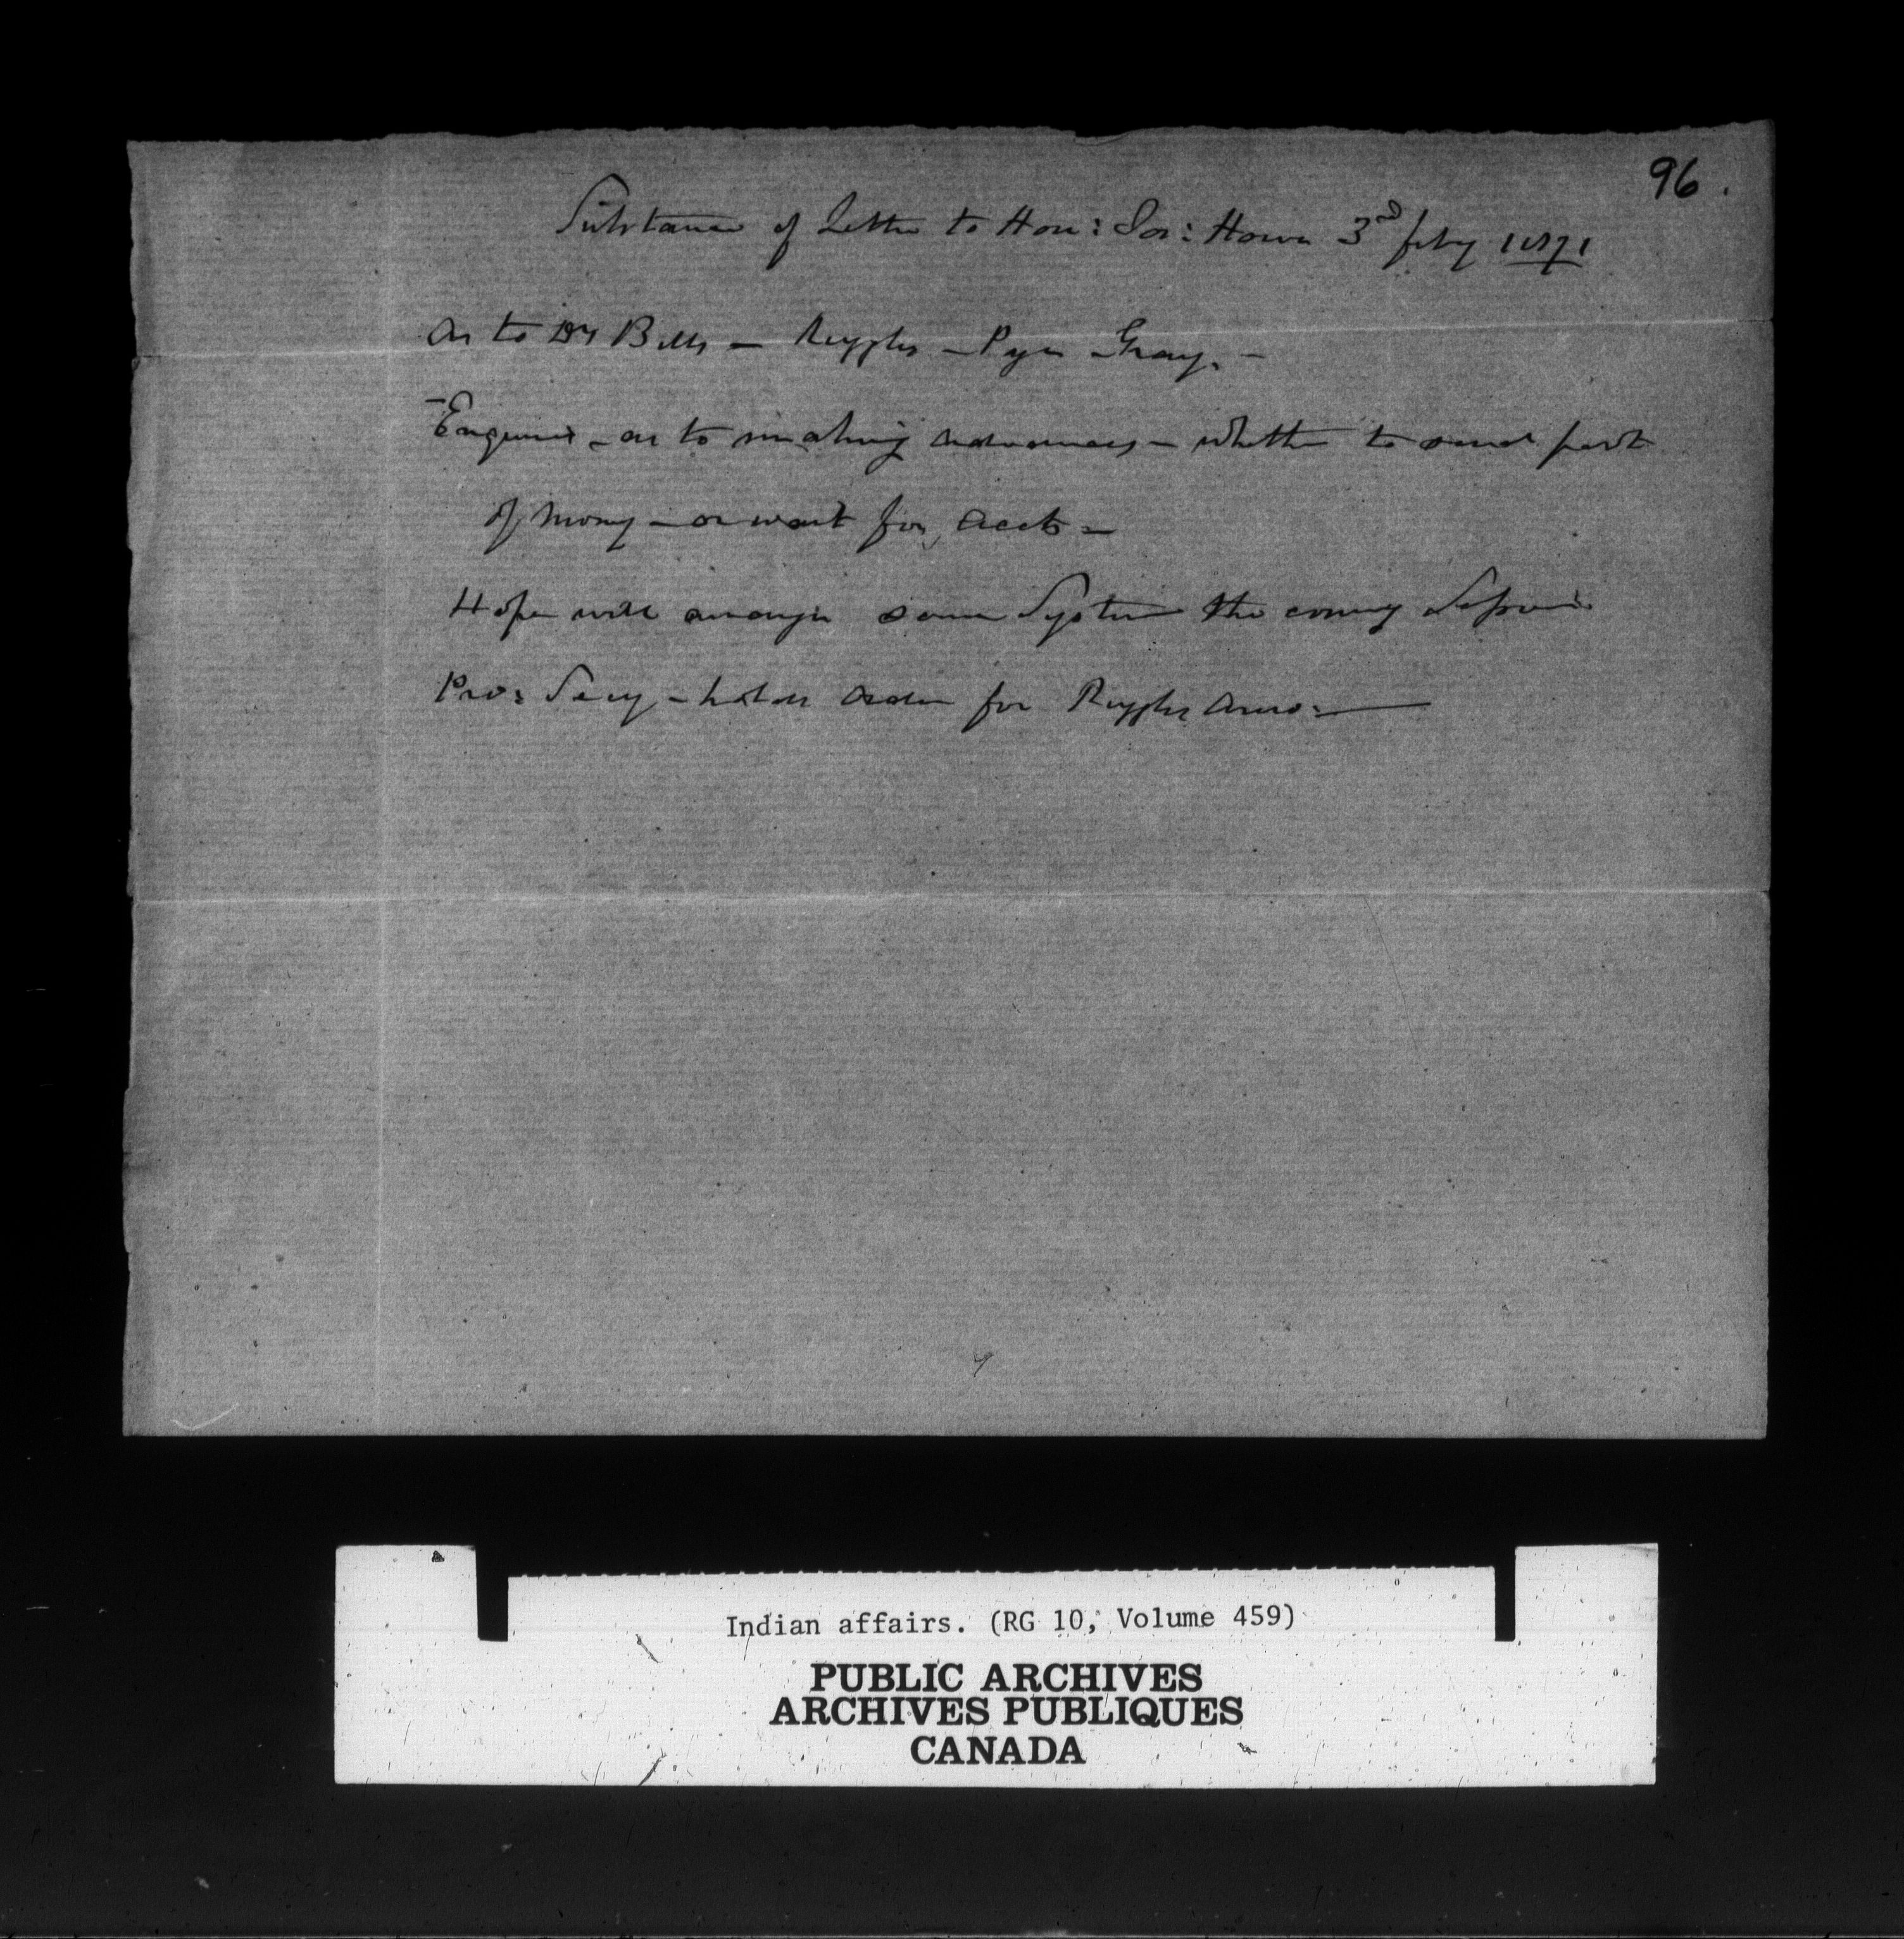 96.
Substance of Letter to Hon: Jos: Howe 3rd feby 1871
As to Dr Bills - Ruggles - Pyn - Gray. -
- Enquired - as to making advances - whether to send part
of Money - or wait for, accts -
Hope will arrange some System the coming Session
Pro: Secy - holds order for Ruggles
Indian affairs. (RG 10, Volume 459)
PUBLIC ARCHIVES
ARCHIVES PUBLIQUES
CANADA